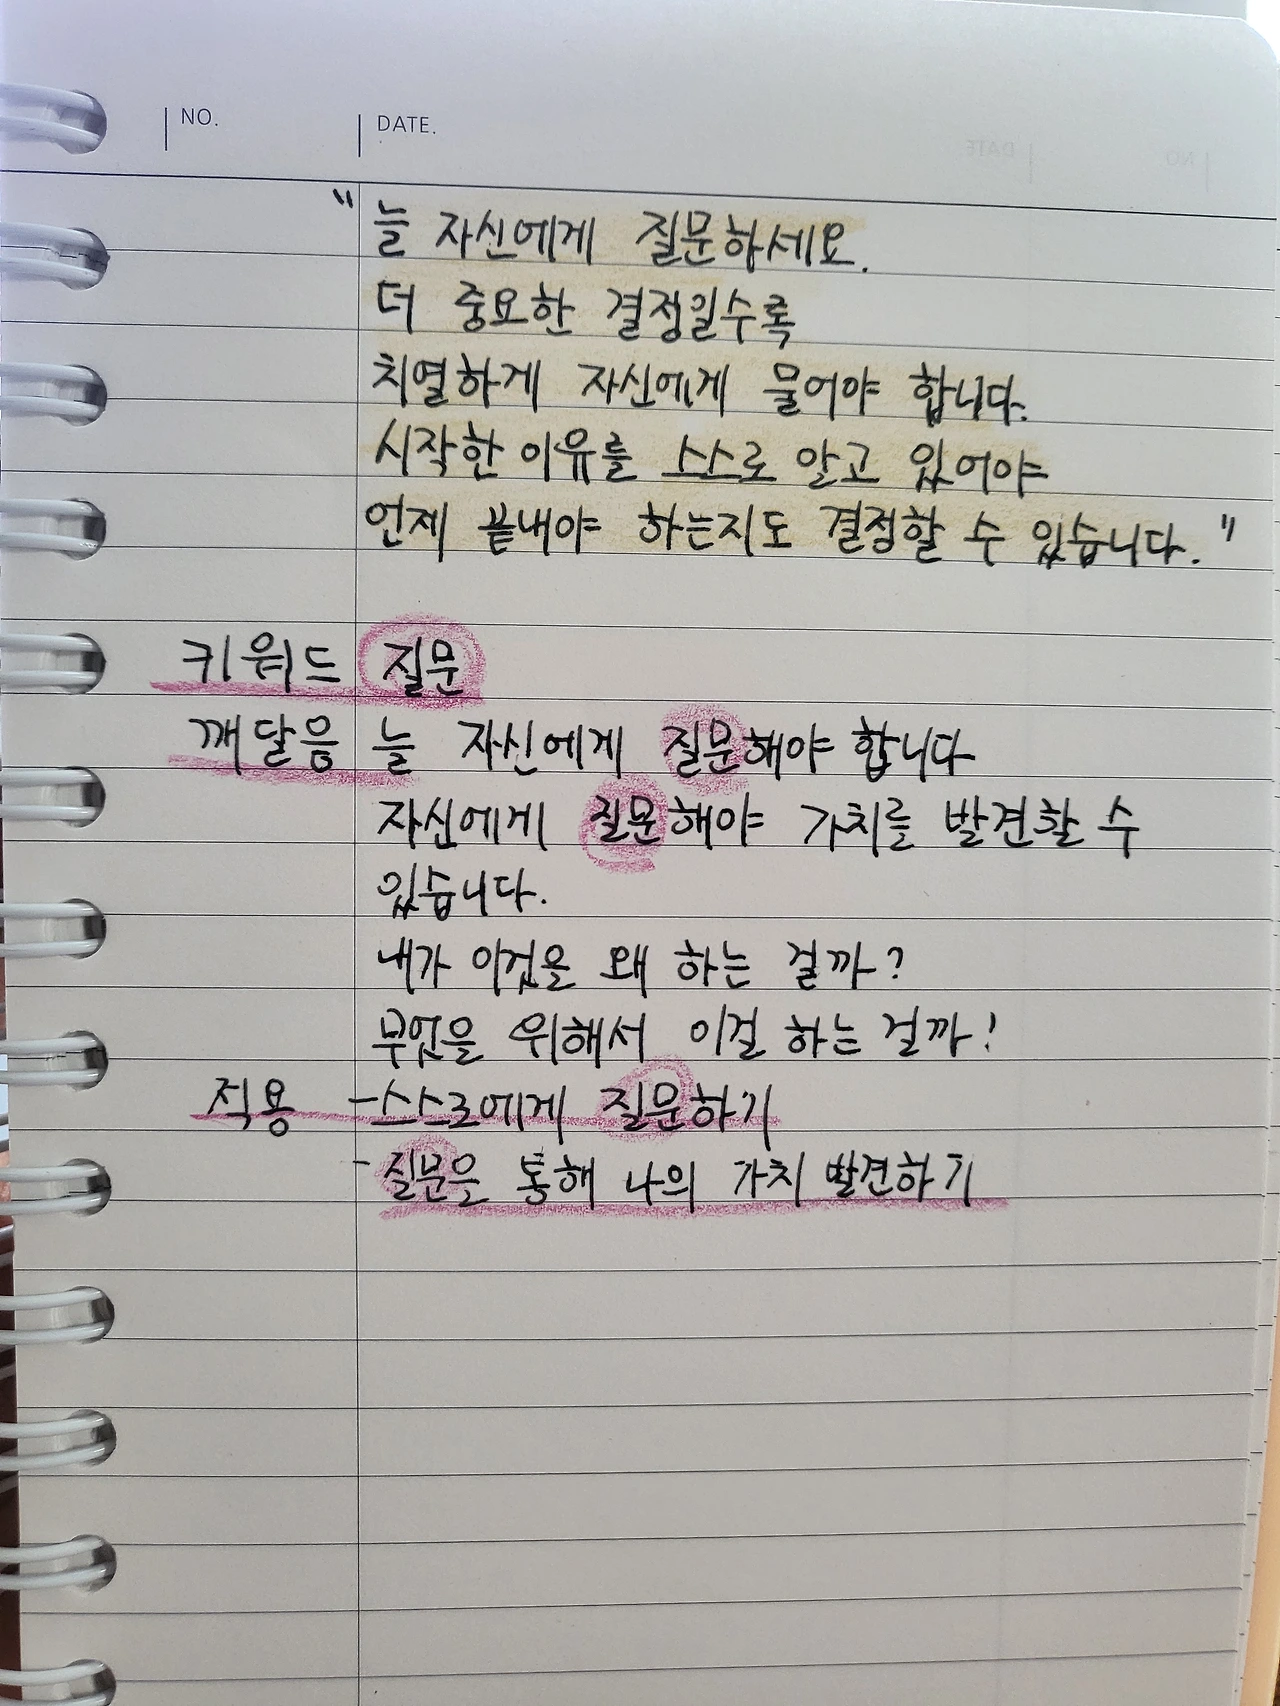 NO. DATE.
" 늘 자신에게 질문하세요.
더 중요한 결정일수록
치열하게 자신에게 물어야 합니다.
시작한 이유를 스스로 알고 있어야
언제 끝내야 하는지도 결정할 수 있습니다. "
키워드 질문
깨달음 늘 자신에게 질문해야 합니다
자신에게 질문해야 가치를 발견할 수
있습니다.
내가 이것을 왜 하는 걸까?
무엇을 위해서 이걸 하는 걸까!
적용 -스스로에게 질문하기
-질문을 통해 나의 가치 발견하기